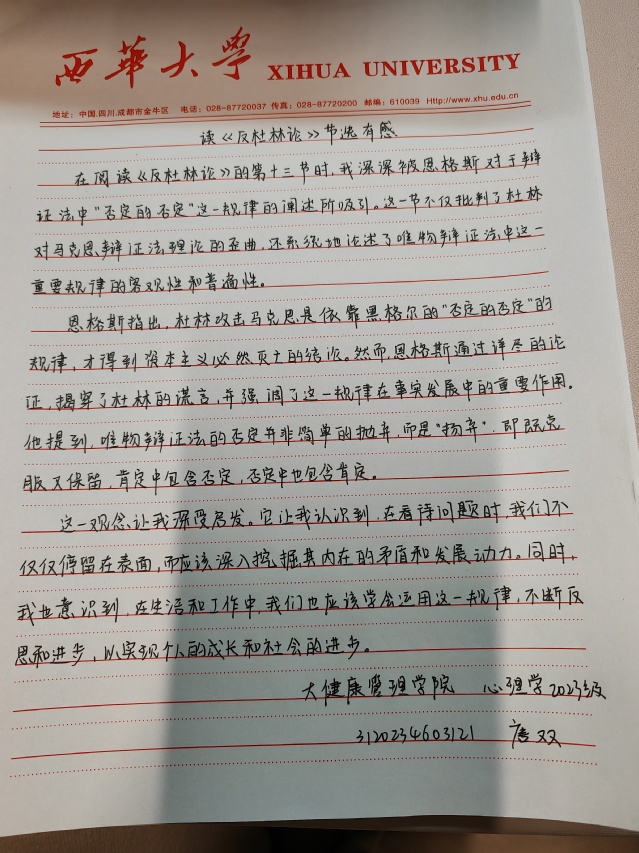 西華大学 XIHUA UNIVERSITY
地址：中国.四川.成都市金牛区 电话：028-87720037 传真：028-87720200 邮编：610039 Http://www.xhu.edu.cn
读《反杜林论》节选有感
在阅读《反杜林论》的第十三节时，我深深被恩格斯对于辩
证法中"否定的否定"这一规律的阐述所吸引。这一节不仅批判了杜林
对马克思辩证法理论的歪曲，还系统地论述了唯物辩证法中这一
重要规律的客观性和普遍性。
恩格斯指出，杜林攻击马克思是依靠黑格尔的"否定的否定"的
规律，才得到资本主义必然灭亡的结论。然而，恩格斯通过详尽的论
证，揭穿了杜林的谎言，并强调了这一规律在事实发展中的重要作用。
他提到，唯物辩证法的否定并非简单的抛弃，而是"扬弃"，即既克
服又保留，肯定中包含否定，否定中也包含肯定。
这一观念让我深受启发。它让我认识到，在看待问题时，我们不
仅仅停留在表面，而应该深入挖掘其内在的矛盾和发展动力。同时，
我也意识到，在生活和工作中，我们也应该学会运用这一规律，不断反
思和进步，以实现个人的成长和社会的进步。
大健康管理学院 心理学2023级
3120234603121 唐双